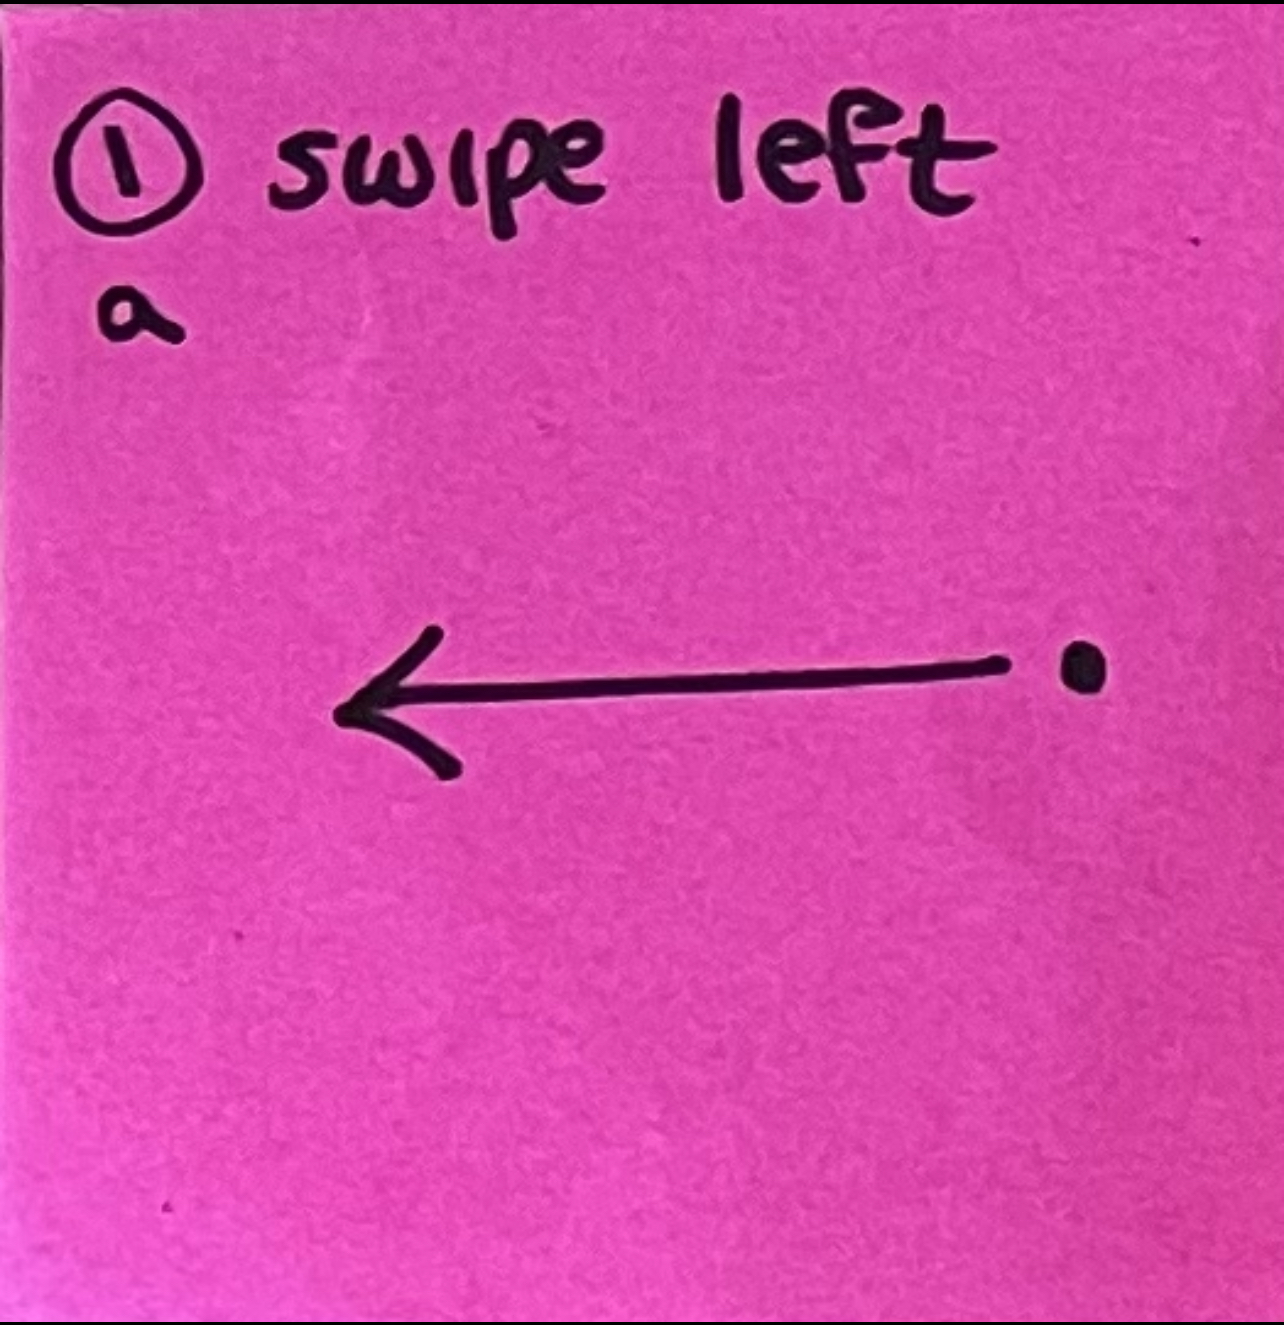 ① swipe left
a